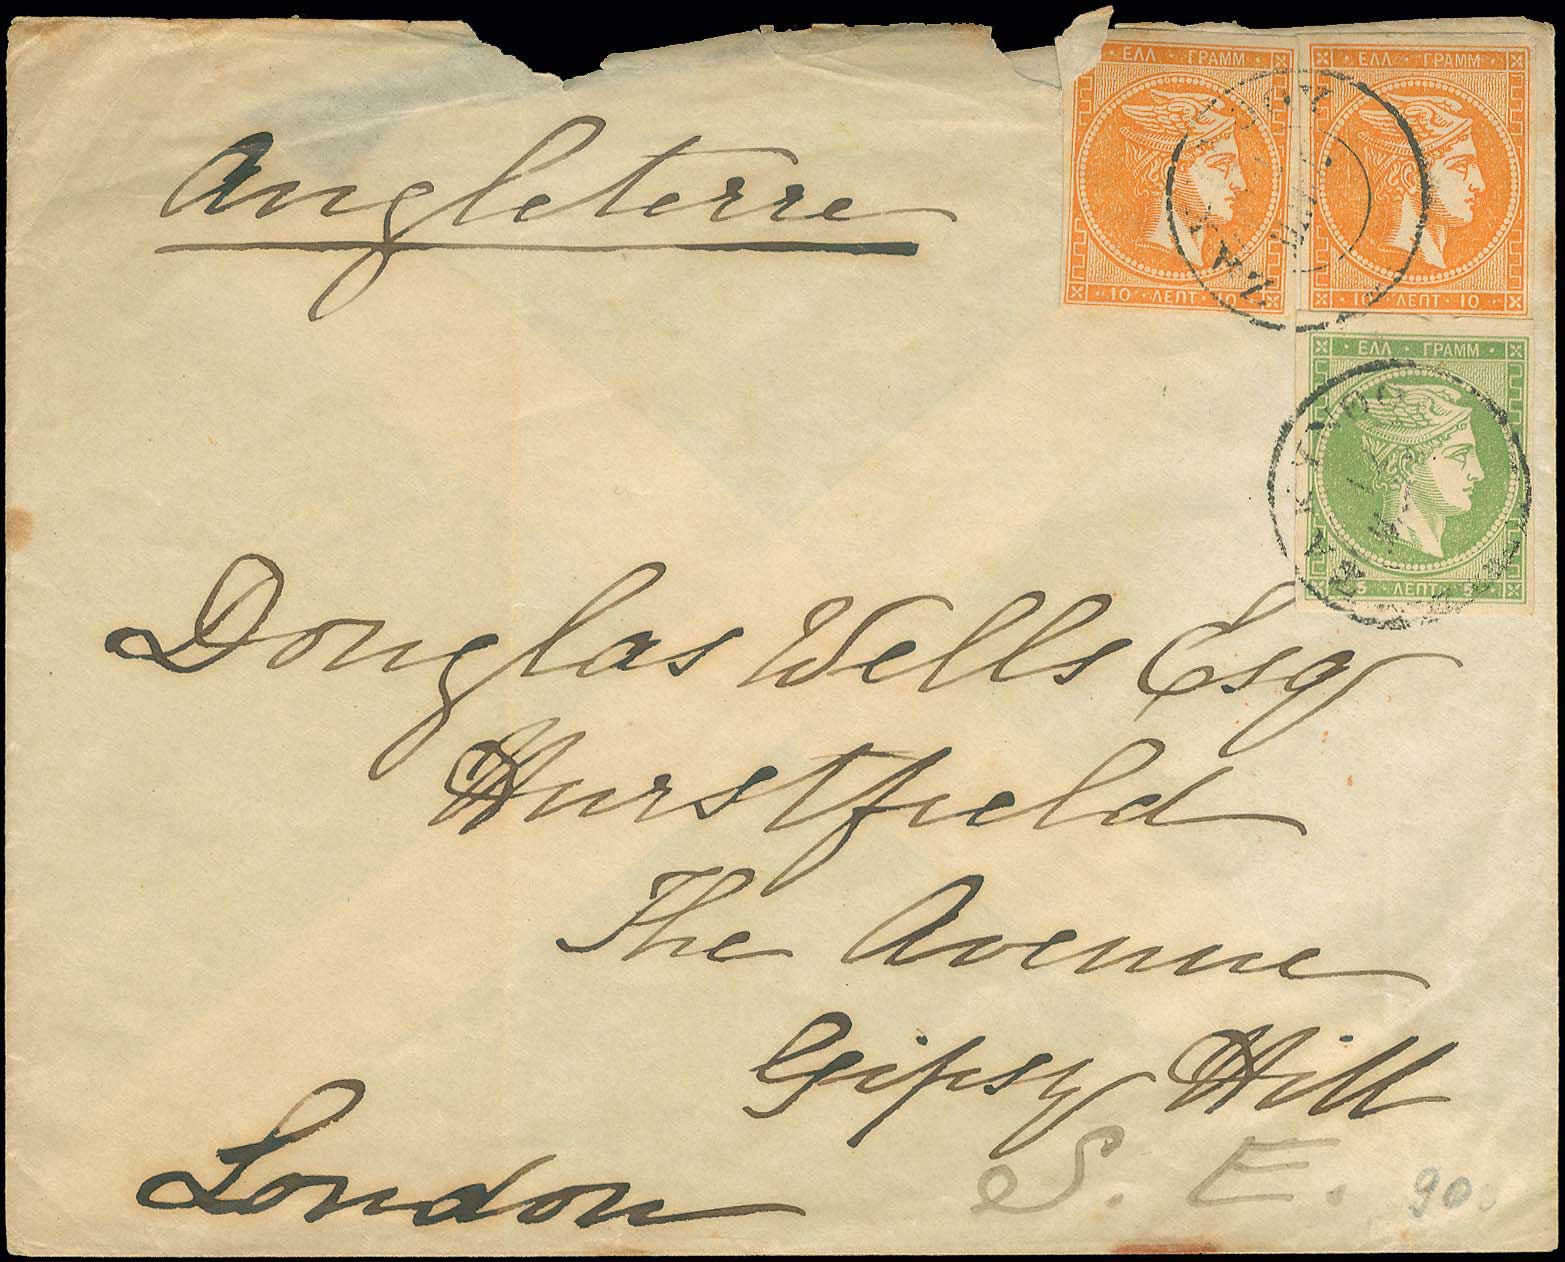 Angleterre
ΕΛΛ · ΓΡΑΜΜ ·
10 · ΛΕΠΤ · 10
· ΕΛΛ · ΓΡΑΜΜ ·
10 · ΛΕΠΤ · 10
· ΕΛΛ · ΓΡΑΜΜ ·
5 · ΛΕΠΤ · 5
Douglas Wells Esq
Hurstfield
The Avenue
Gipsy Hill
London
S. E.
90